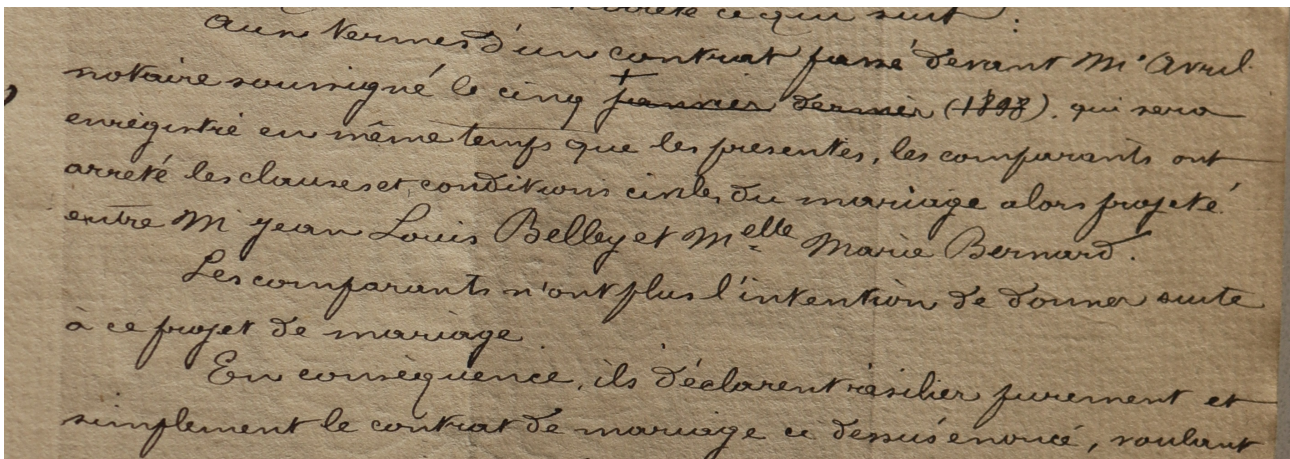 arrêté ce qui suit :
Aux termes d'un contrat passé devant Me Avril
notaire soussigné le cinq + janvier dernier (1898). qui sera
enrégistré en même temps que les présentes, les comparants ont
arrêté les clauses et conditions civiles du mariage alors projeté
entre M Jean Louis Belley et Melle Marie Bernard.
Les comparants n'ont plus l'intention de donner suite
à ce projet de mariage
En conséquence, ils déclarent résilier purement et
simplement le contrat de mariage ci dessus énoncé, voulant